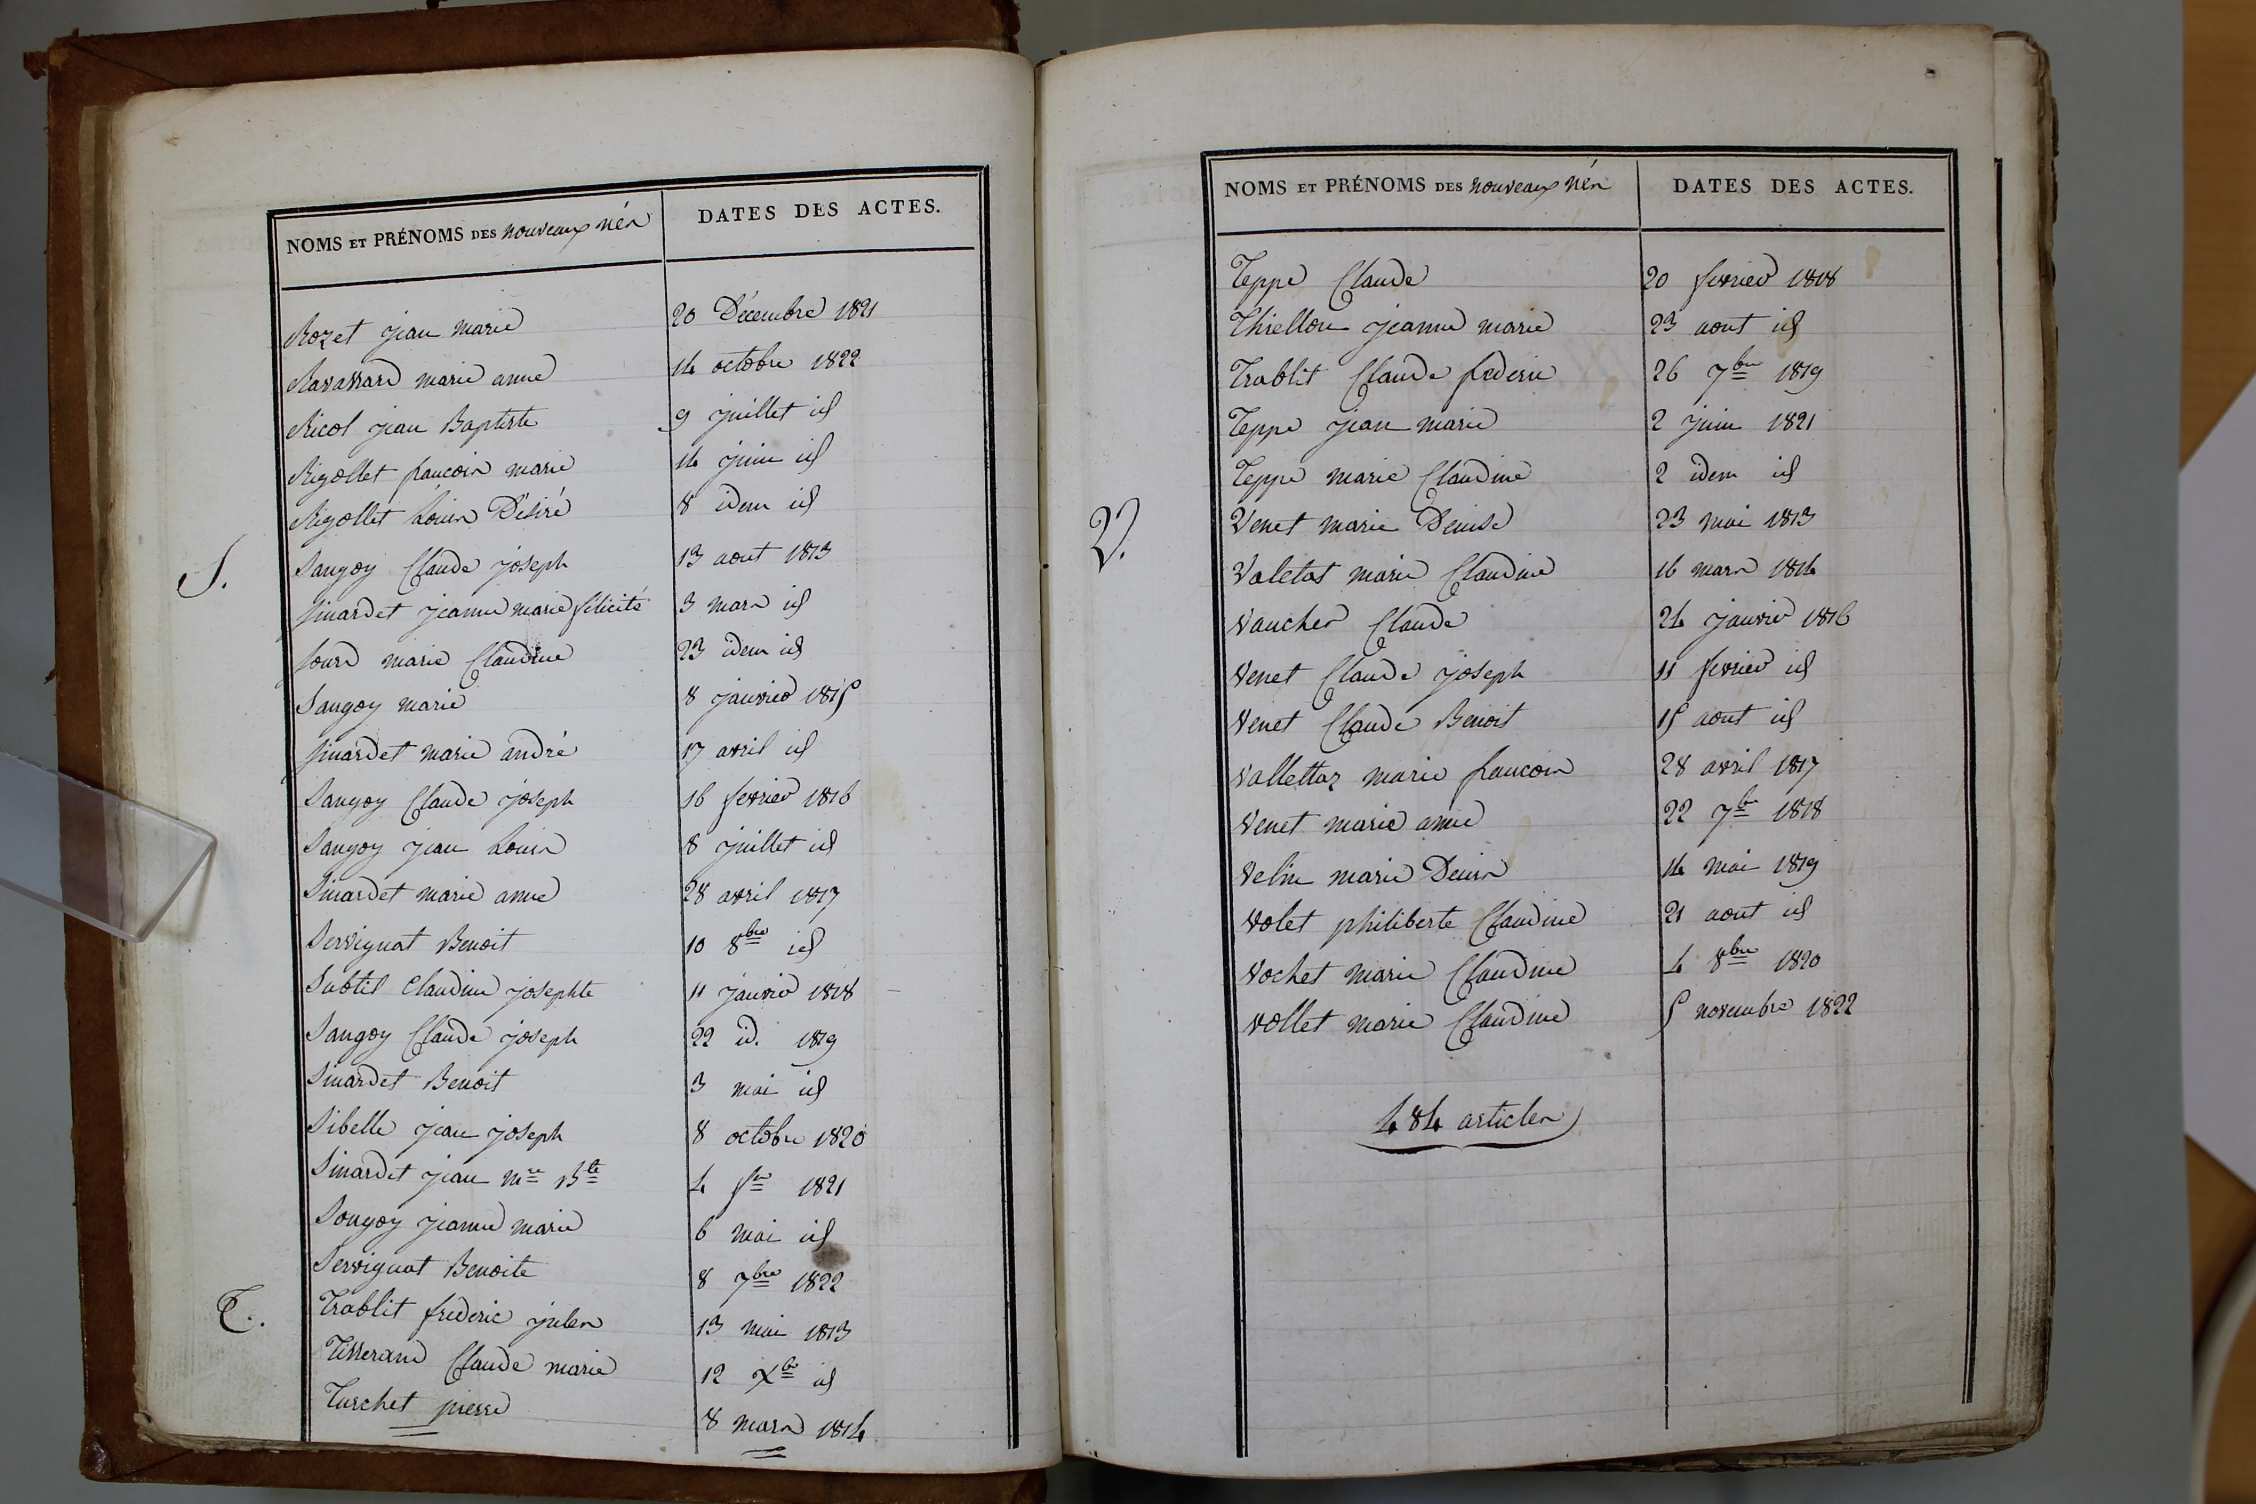 NOMS ET PRÉNOMS DES nouveaux nés DATES DES ACTES.
Rozet jean marie 20 Décembre 1821
Ravassard marie anne 14 octobre 1822
Ricol jean Baptiste 9 juillet id
Rigollet francois marie 14 juin id
Rigollet Louis Désiré 8 idem id
S. Sangoy Claude joseph 13 aout 1813
Sinardet jeanne marie félicité 3 mars id
Sourd marie Claudine 23 idem id
Sangoy marie 8 janvier 1815
Sinardet marie andré 17 avril id
Sangoy Claude joseph 16 fevrier 1816
Sangoy jean Louis 8 juillet id
Sinardet marie anne 28 avril 1817
Servignat Benoit 10 8bre id
Subtil Claudine josephte 11 janvier 1818
Sangoy Claude joseph 22 id. 1819
Sinardet Benoit 3 mai id
Sibelle jean joseph 8 octobre 1820
Sinardet jean mie Bte 4 fer 1821
Songoy jeanne marie 6 mai id
Servignat Benoite 8 7bre 1822
T. Trablit frederic jules 13 mai 1813
Tisserand Claude marie 12 Xbr id
Turchet pierre 8 mars 1814
NOMS ET PRÉNOMS DES nouveaux nés DATES DES ACTES.
Teppe Claude 20 fevrier 1818
Thiellon jeanne marie 23 aout id
Trablit Claude frederic 26 7bre 1819
Teppe jean marie 2 juin 1821
Teppe marie Claudine 2 idem id
V. Venet marie Denise 23 mai 1813
Valetas marie Claudine 16 mars 1814
Vaucher Claude 24 janvier 1816
Venet Claude joseph 11 fevrier id
Venet Claude Benoit 15 aout id
Vallettaz marie francois 28 avril 1817
Venet marie anne 22 7br 1818
Velin marie Denis 14 mai 1819
Volet philiberte Claudine 21 aout id
Vochet marie Claudine 4 8bre 1820
Vollet marie Claudine 5 novembre 1822
484 articles